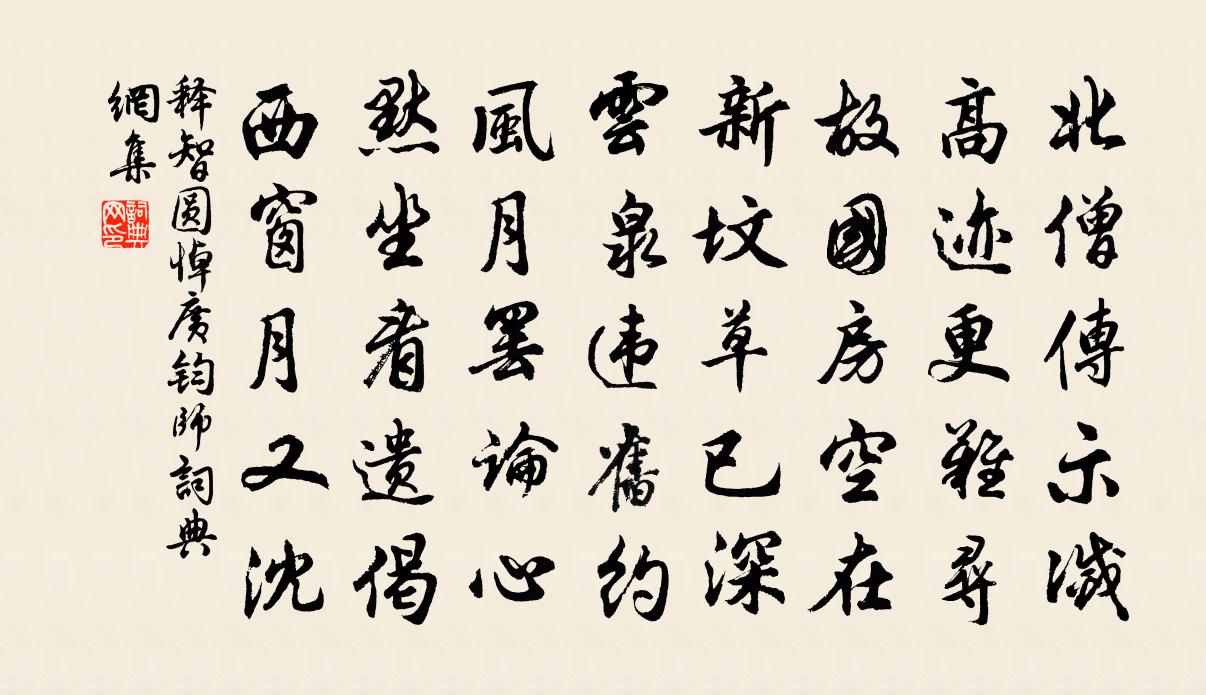 北僧傳示滅
高迹更難尋
故國房空在
新墳草已深
雲泉违舊約
風月罢論心
默坐看遗偈
西窗月又沈
释智圆悼广钧師詞典
網集
詞典網印